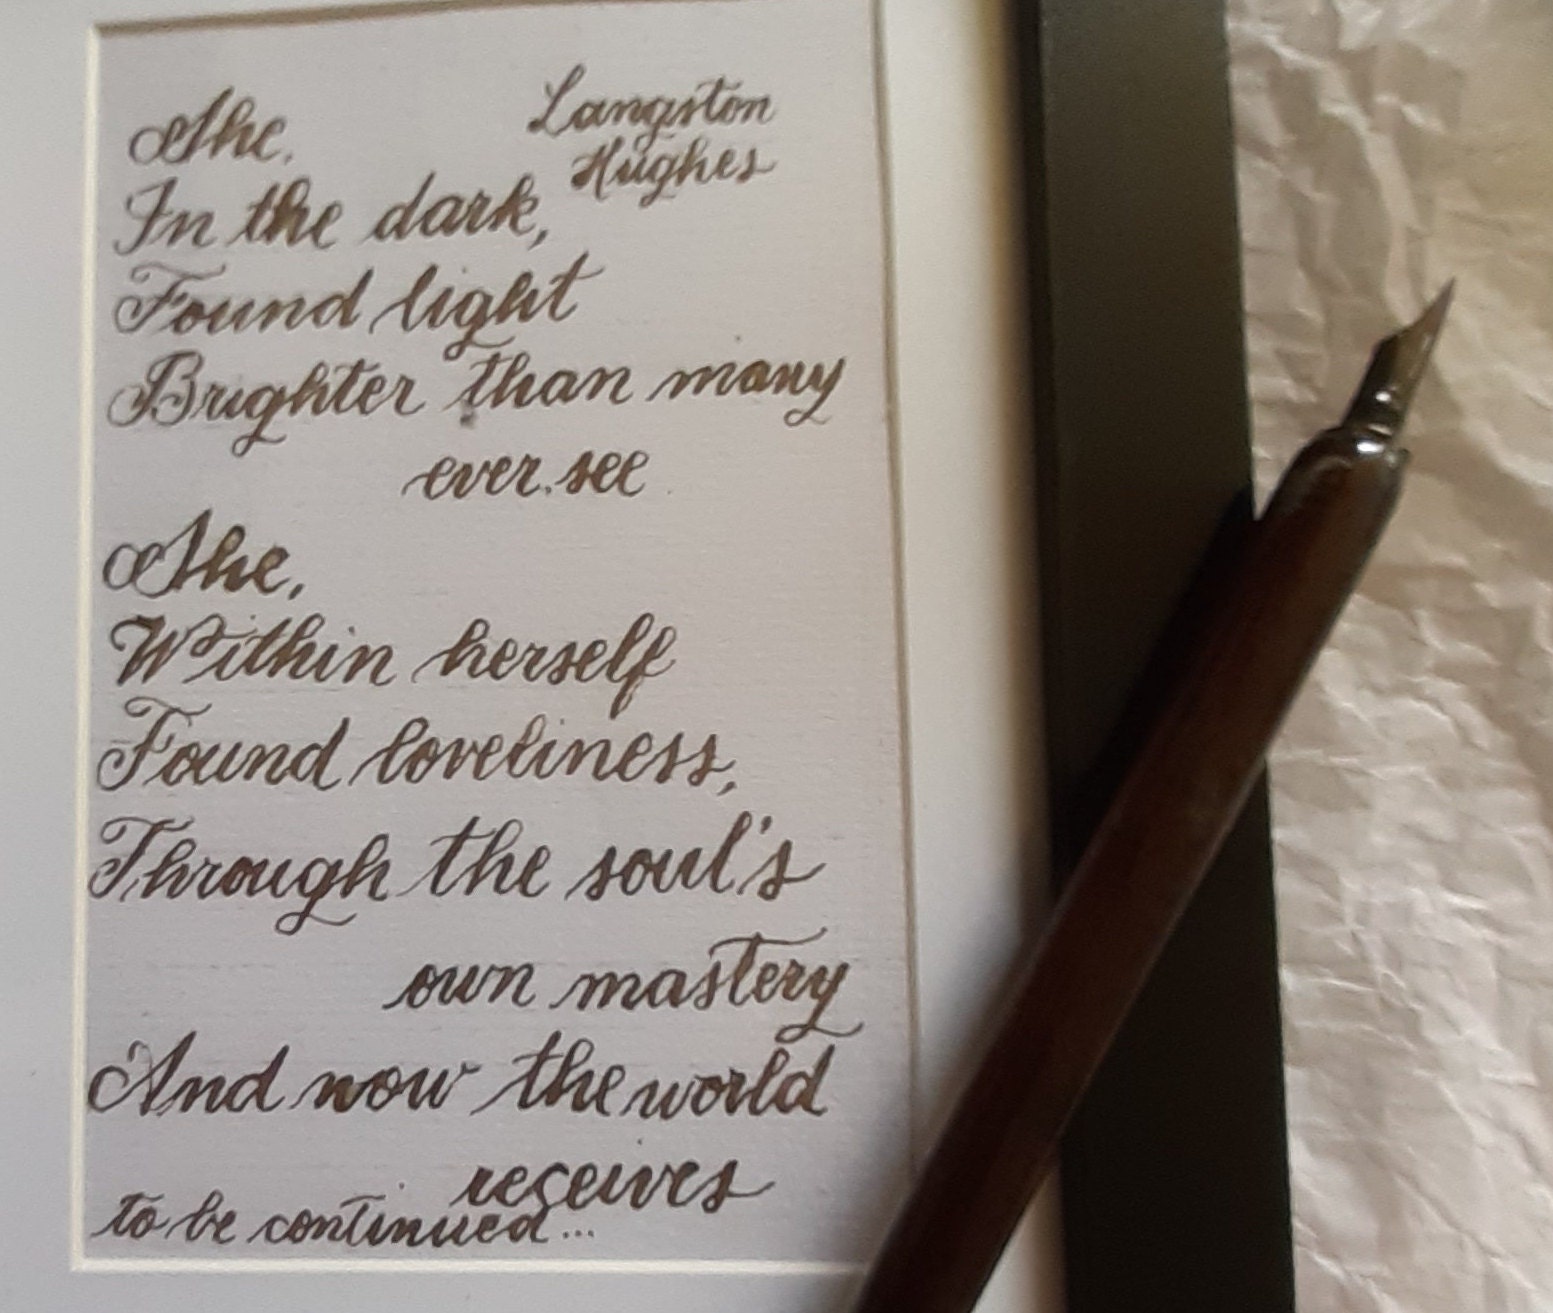 She,
Langston
Hughes
In the dark,
Found light
Brighter than many
ever see.
She,
Within herself
Found loveliness,
Through the soul's
own mastery
And now the world
receives
to be continued...